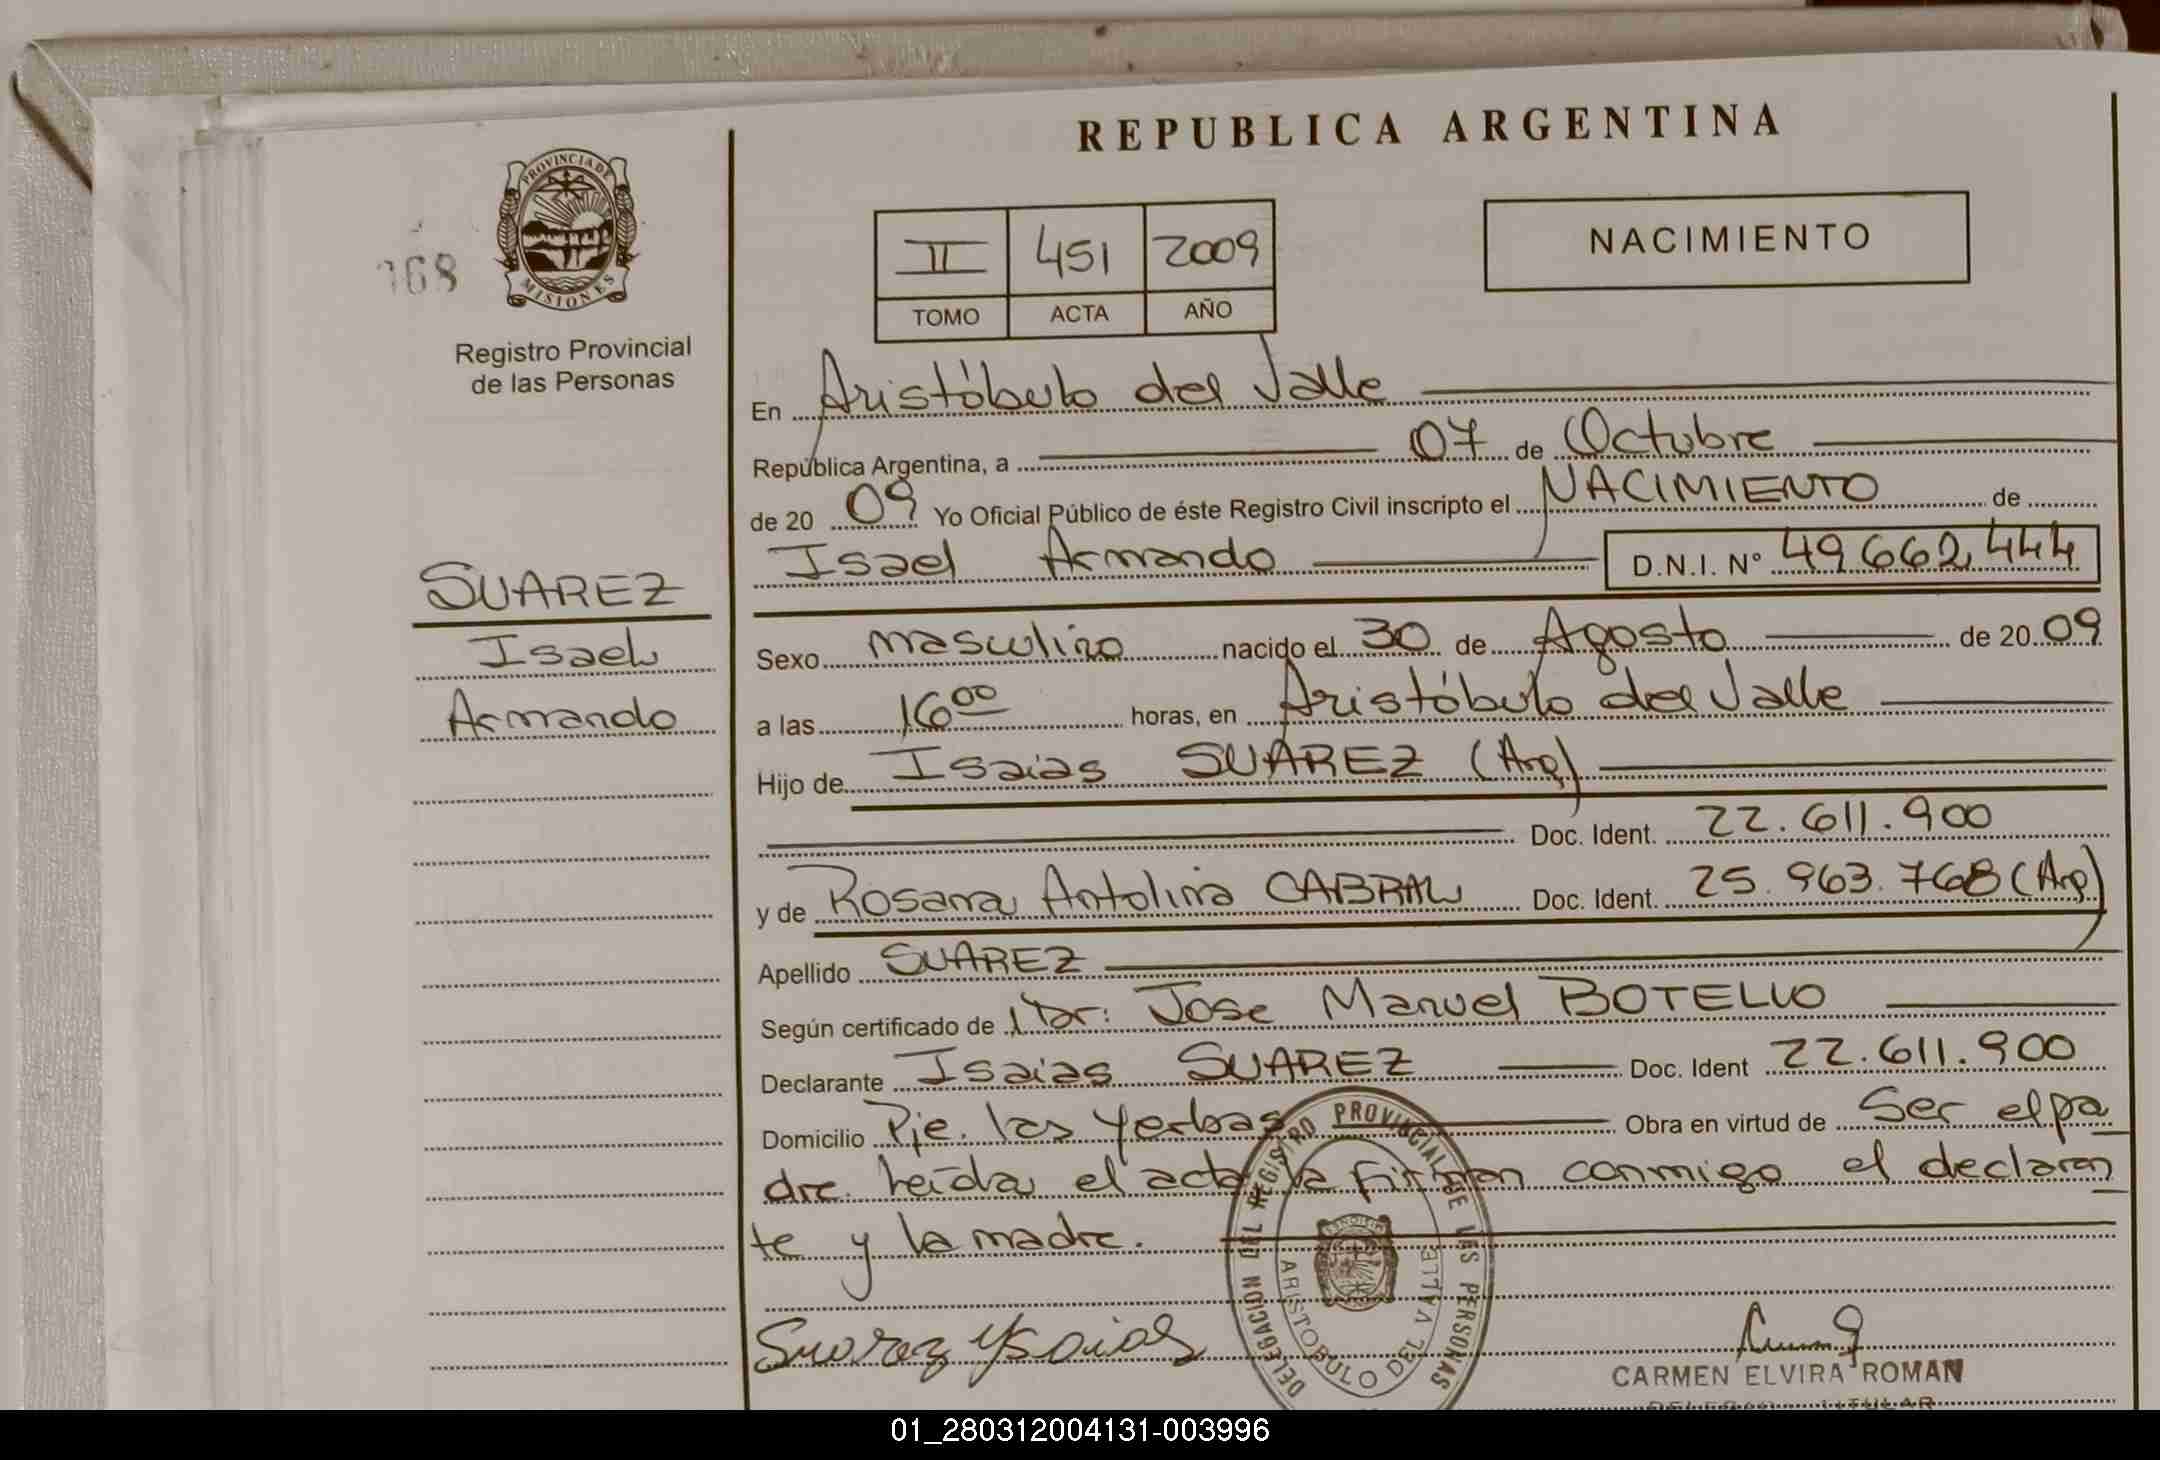 REPUBLICA ARGENTINA
PROVINCIA DE
MISIONES
168
Registro Provincial
de las Personas
II 451 2009
TOMO ACTA AÑO
NACIMIENTO
En Aristóbulo del Valle
República Argentina, a 07 de Octubre
de 20 09 Yo Oficial Público de éste Registro Civil inscripto el NACIMIENTO de
Isael Armando D.N.I. Nº 49.662.444
SUAREZ
Isael
Armando
Sexo masculino nacido el 30 de Agosto de 20 09
a las 16 00 horas, en Aristóbulo del Valle
Hijo de Isaias SUAREZ (Arg)
Doc. Ident. 22.611.900
y de Rosana Antolina CABRAL Doc. Ident. 25.963.768 (Arg)
Apellido SUAREZ
Según certificado de Dr: Jose Manuel BOTELLO
Declarante Isaias SUAREZ Doc. Ident 22.611.900
Domicilio Pje. las Yerbas Obra en virtud de Ser el pa
dre. Leída el acta la firman conmigo el declaran
te y la madre.
DELEGACION DEL REGISTRO PROVINCIAL DE LAS PERSONAS
ARISTOBULO DEL VALLE
Suarez Ysaias
CARMEN ELVIRA ROMAN
TITULAR
01_280312004131-003996